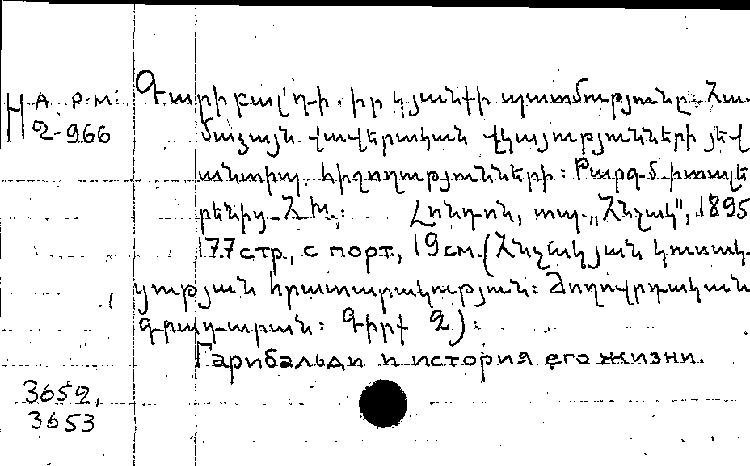 Н А. Р. М.
2-966
Գարիբալդի. իր կյանքի պատմությունը. Համաձայն վավերական վկայությունների յեվ
անտիպ հիշողությունների: Թարգմ. իտալե
րենից Հ. Մ.: Լոնդոն, տպ. „Հնչակ", 1895
177 стр., с порт., 19 см. (Հնչակյան կուսակ-
ցության հրատարակություն: Ժողովրդական
գրադարան: Գիրք 2):
Гарибальди и история его жизни.
3652,
3653